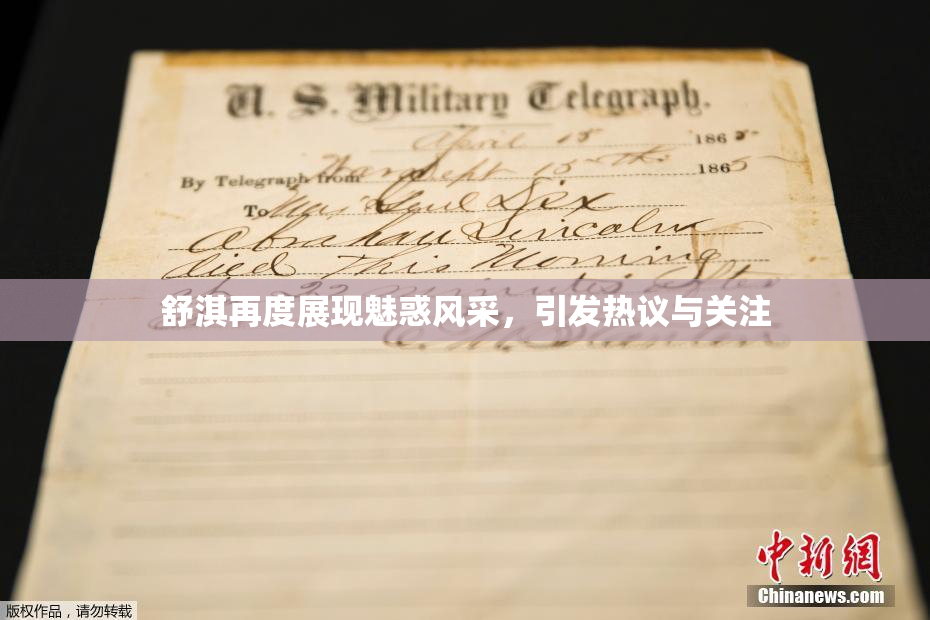 U. S. Military Telegraph.
April 15 1865
By Telegraph from War Dept 15th 1865
To Maj Genl Dix
Abraham Lincoln
died This Morning
at 22 minutes after
舒淇再度展现魅惑风采，引发热议与关注
E. M. Stanton
中新网
Chinanews.com
版权作品，请勿转载